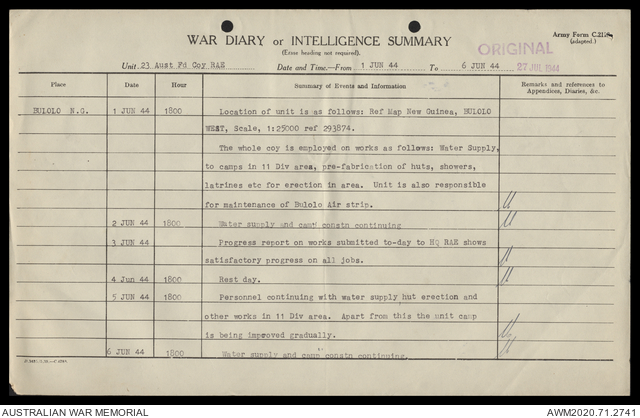 WAR DIARY or INTELLIGENCE SUMMARY
(Erase heading not required).
Army Form C.2118.
(adapted.)
ORIGINAL
27 JUL 1944
Unit 23 Aust Fd Coy RAE Date and Time—From 1 JUN 44 To 6 JUN 44
Place Date Hour Summary of Events and Information Remarks and references to Appendices, Diaries, &c.
BULOLO N.G. 1 JUN 44 1800 Location of unit is as follows: Ref Map New Guinea, BULOLO
WEST, Scale, 1:25000 ref 293874.
The whole coy is employed on works as follows: Water Supply,
to camps in 11 Div area, pre-fabrication of huts, showers,
latrines etc for erection in area. Unit is also responsible
for maintenance of Bulolo Air strip.
2 JUN 44 1800 Water supply and camp constn continuing
3 JUN 44 Progress report on works submitted to-day to HQ RAE shows
satisfactory progress on all jobs.
4 Jun 44 1800 Rest day.
5 JUN 44 1800 Personnel continuing with water supply hut erection and
other works in 11 Div area. Apart from this the unit camp
is being improved gradually.
6 JUN 44 1800 Water supply and camp constn continuing.
AUSTRALIAN WAR MEMORIAL AWM2020.71.2741